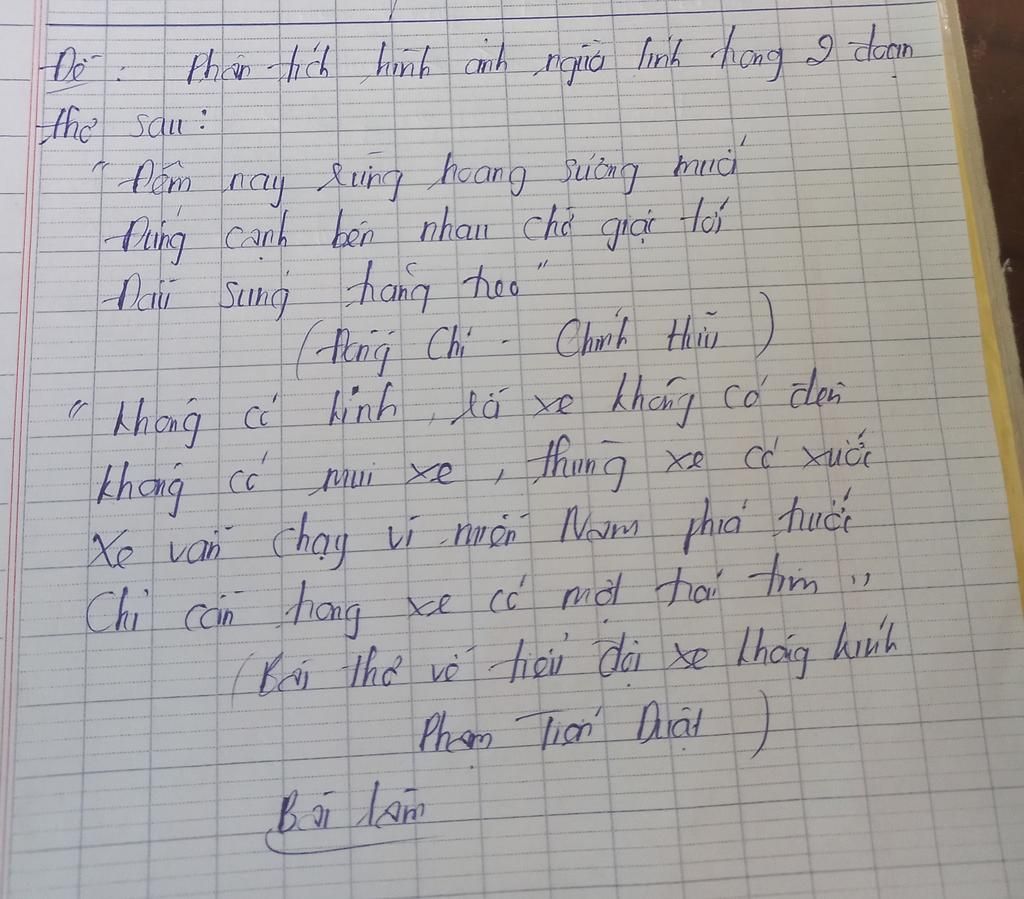 Đề : Phân tích hình ảnh người lính trong 2 đoạn
thơ sau :
"Đêm nay rừng hoang sương muối
Đứng cạnh bên nhau chờ giặc tới
Đầu súng trăng treo"
(Đồng Chí - Chính Hữu)
"Không có kính, rồi xe không có đèn
Không có mui xe, thùng xe có xước
Xe vẫn chạy vì miền Nam phía trước
Chỉ cần trong xe có một trái tim"
(Bài thơ về tiểu đội xe không kính
Phạm Tiến Duật)
Bài làm